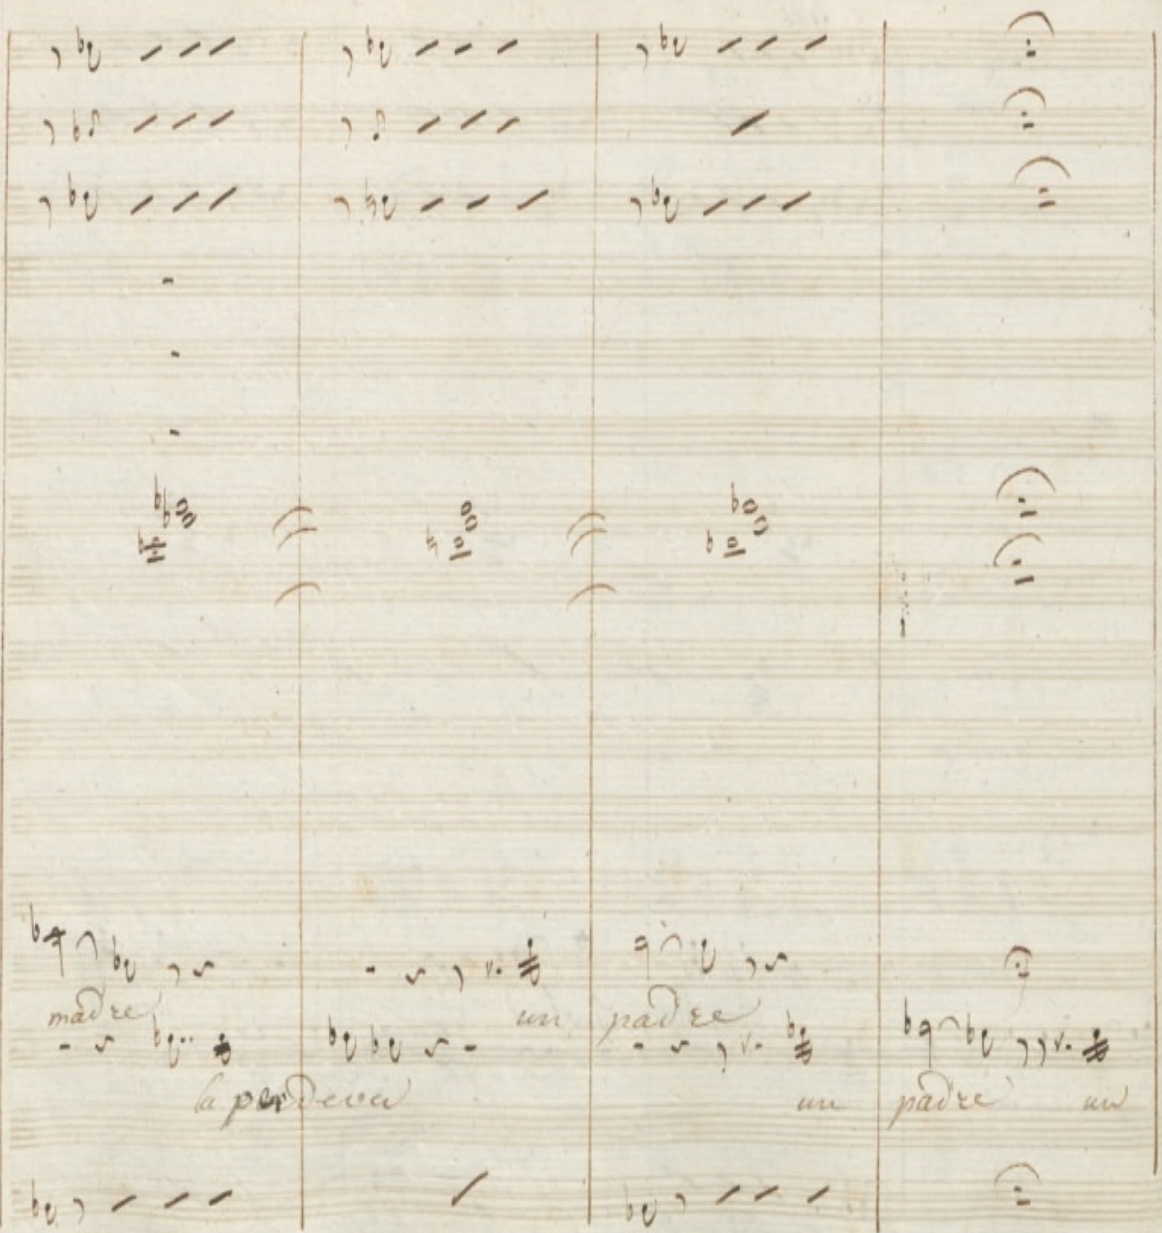 madre un padre
la perdeva un padre un